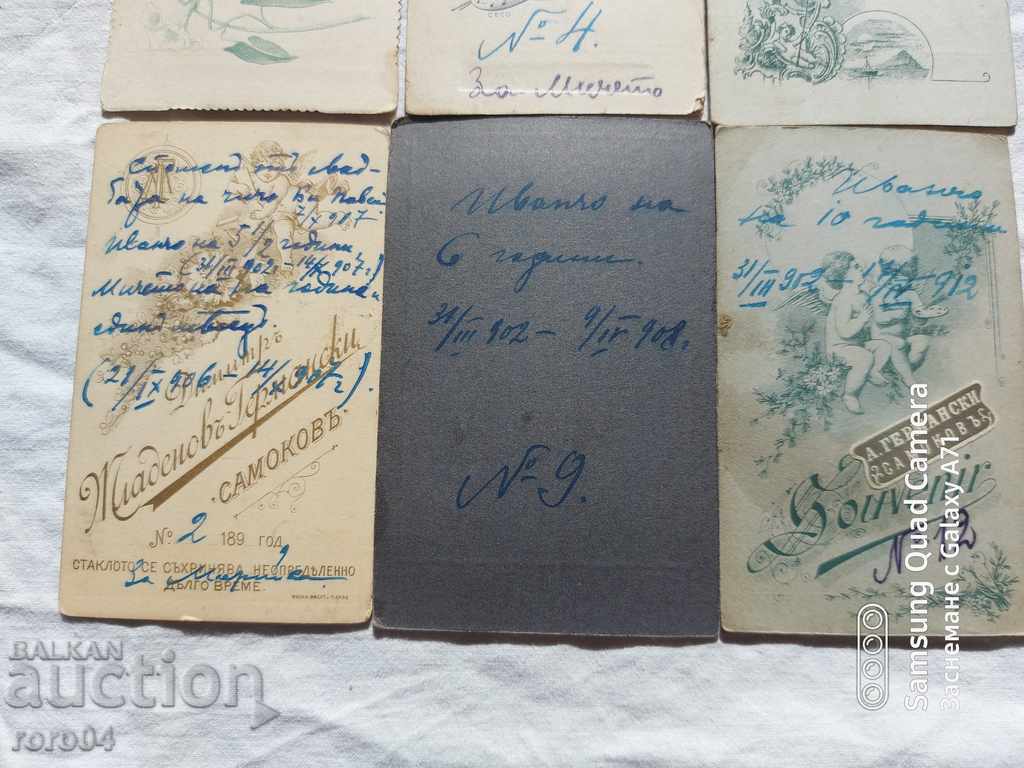 СЕСО
№ 4.
За Мичето
Споменъ отъ свад-
бата на чичо
7/X 907.
Иванчо на 5 1/2 години
(31/III 902 – 14/X 907 г.)
Мичето на 1 година и
единъ месецъ.
(21/IX 906 – 14/X 907 г.)
Димитръ
Младеновъ Германски
САМОКОВЪ.
№ 2 189 год.
СТАКЛОТО СЕ СЪХРИНЯВА НЕОПРЕДѢЛЕННО
ДЪЛГО ВРЕМЕ.
За Марийка.
Иванчо на
6 години.
31/III 902 – 9/IV 908 г.
№ 9.
Иванчо
на 10 години
31/III 902 – /IV 912
А. ГЕРМАНСКИ
САМОКОВЪ
Souvenir
№ 12
BALKAN
auction
roro04
Samsung Quad Camera
Заснемане с Galaxy A71